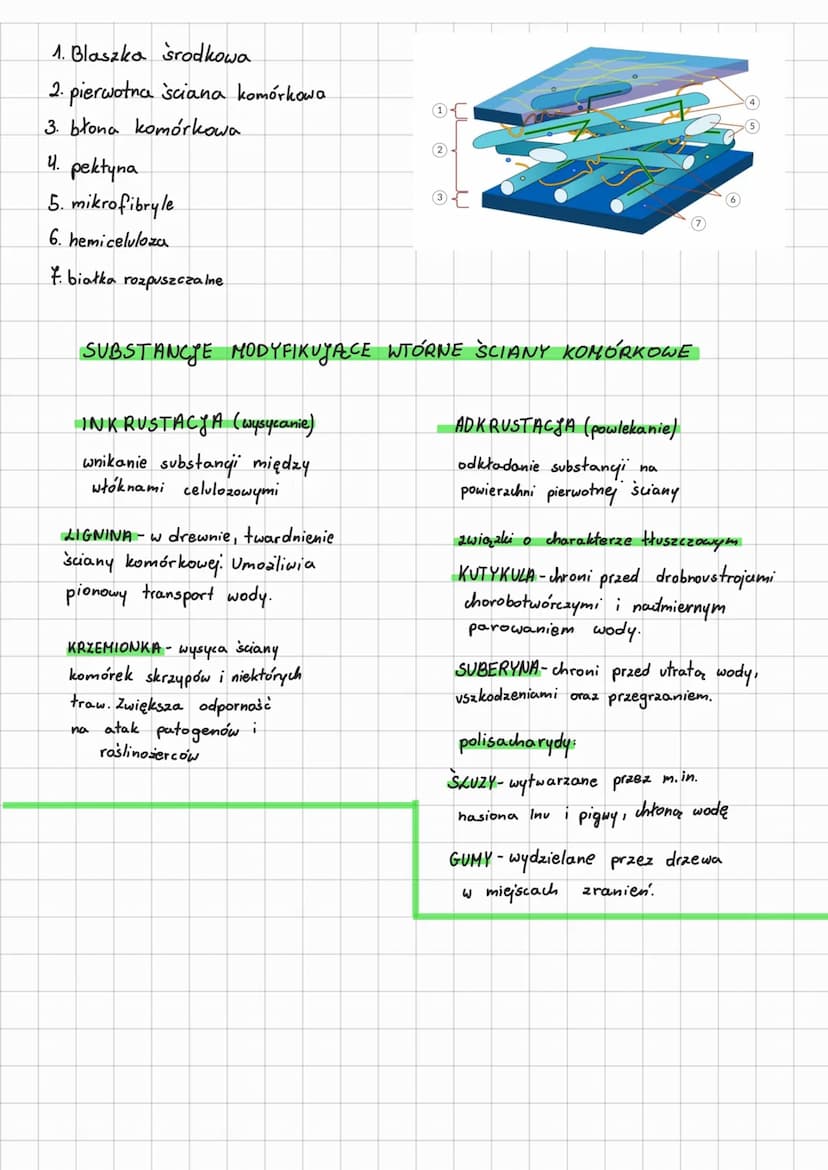 1. Blaszka środkowa
2. pierwotna ściana komórkowa
3. błona komórkowa
4. pektyna
5. mikrofibryle
6. hemiceluloza
7. białka rozpuszczalne
1
2
3
4
5
6
7
SUBSTANCJE MODYFIKUJĄCE WTÓRNE ŚCIANY KOMÓRKOWE
INKRUSTACJA (wysycanie)
wnikanie substancji między
włóknami celulozowymi
LIGNINA - w drewnie, twardnienie
ściany komórkowej. Umożliwia
pionowy transport wody.
KRZEMIONKA - wysyca ściany
komórek skrzypów i niektórych
traw. Zwiększa odporność
na atak patogenów i
roślinożerców
ADKRUSTACJA (powlekanie)
odkładanie substancji na
powierzchni pierwotnej ściany
związki o charakterze tłuszczowym
KUTYKULA - chroni przed drobnoustrojami
chorobotwórczymi i nadmiernym
parowaniem wody.
SUBERYNA - chroni przed utratą wody,
uszkodzeniami oraz przegrzaniem.
polisacharydy:
ŚLUZY - wytwarzane przez m.in.
nasiona lnu i pigwy, chłoną wodę
GUMY - wydzielane przez drzewa
w miejscach zranień.